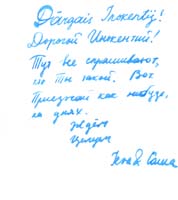 Dārgais Inokentij!
Дорогой Инокентий!
Тут все спрашивают,
кто ты такой. Вот
Приезжай как нибудь,
на днях.
Ждём
Целуем
Саша